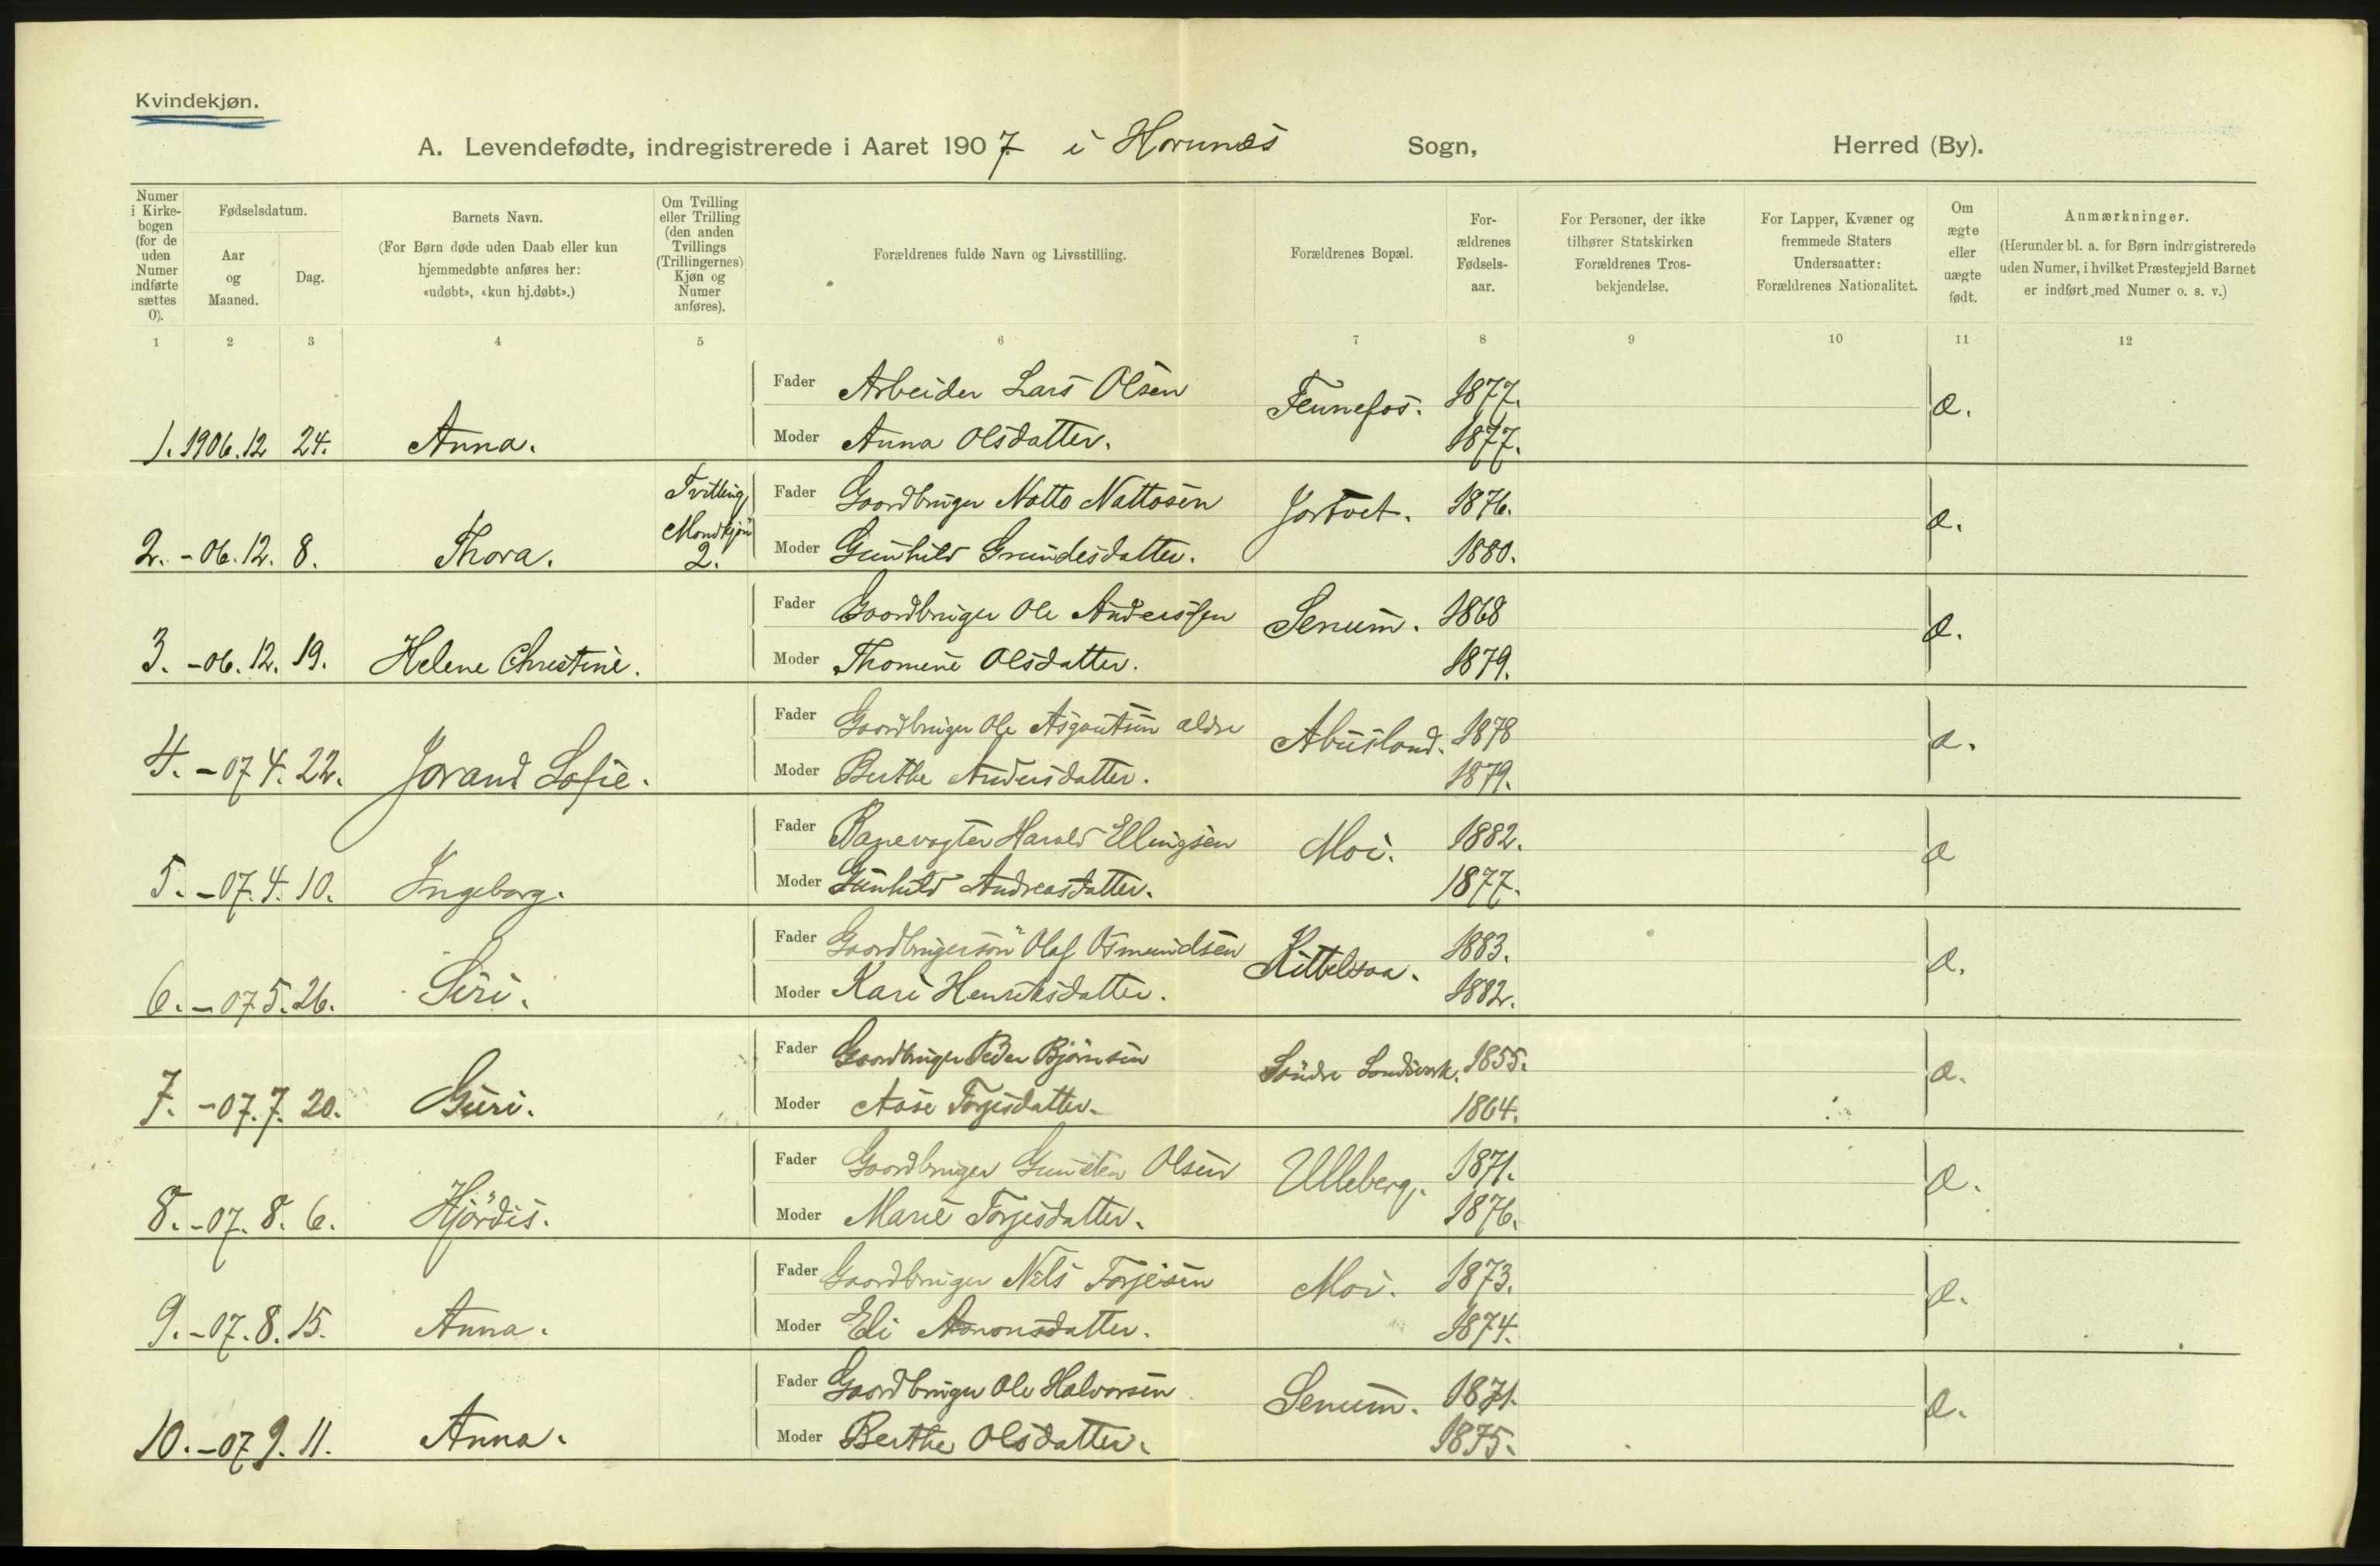 Kvindekjøn.
A. Levendefødte, indregistrerede i Aaret 1907 i Hornnæs Sogn, Herred (By).
Numer i Kirkebogen (for de uden Numer indførte sættes 0).
Fødselsdatum.
Aar og Maaned.
Dag.
Barnets Navn.
(For Børn døde uden Daab eller kun hjemmedøbte anføres her: «udøbt», «kun hj.døbt».)
Om Tvilling eller Trilling (den anden Tvillings (Trillingernes) Kjøn og Numer anføres).
Forældrenes fulde Navn og Livsstilling.
Forældrenes Bopæl.
Forældrenes Fødselsaar.
For Personer, der ikke tilhører Statskirken Forældrenes Trosbekjendelse.
For Lapper, Kvæner og fremmede Staters Undersaatter: Forældrenes Nationalitet.
Om ægte eller uægte født.
Anmærkninger.
(Herunder bl. a. for Børn indregistrerede uden Numer, i hvilket Præstegjeld Barnet er indført med Numer o. s. v.)
1 2 3 4 5 6 7 8 9 10 11 12
Fader Arbeider Lars Olsen Fennefos. 1877. æ.
1. 1906.12 24. Anna. Moder Anna Olsdatter. 1877.
Tvilling, Fader Gaardbruger Notto Nottosen Jortvet. 1876. æ.
Mandkjøn
2. -06.12. 8. Thora. 2. Moder Gunhild Grundesdatter. 1880.
Fader Gaardbruger Ole Anderssen Senum. 1868 æ.
3. -06.12. 19. Helene Christine. Moder Thomine Olsdatter. 1879.
Fader Gaardbruger Ole Asgautsen ældre Abusland. 1878 æ.
4. -07 4. 22. Jorand Sofie. Moder Berthe Andersdatter. 1879.
Fader Banevogter Harald Ellingsen Moi. 1882. æ
5. -07.4. 10. Ingeborg. Moder Gunhild Andreasdatter. 1877.
Fader Gaardbrugersøn Olaf Osmundsen Kittelsaa. 1883. æ.
6. -07 5. 26. Siri. Moder Kari Henriksdatter. 1882.
Fader Gaardbruger Peder Bjørnsen Søndre 1855. æ.
7. -07.7. 20. Guri. Moder Aase Torjesdatter. 1864.
Fader Gaardbruger Gunsten Olsen Ulleberg. 1871. æ.
8. -07. 8. 6. Hjördis. Moder Marie Torjesdatter. 1876.
Fader Gaardbruger Nils Torjesen Moi. 1873. æ.
9. -07. 8. 15. Anna. Moder Eli Aanonsdatter. 1874.
Fader Gaardbruger Ole Halvorsen Senum. 1871. æ.
10. -07 9. 11. Anna. Moder Berthe Olsdatter. 1875.